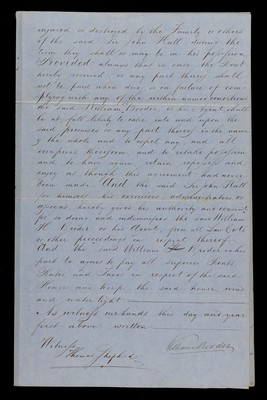 injured or destroyed by the Tenants or others
of the said Sir John Hall during the
term they shall or may be in his possession
Provided always that in case the Rent
hereby reserved or any part thereof shall
not be paid when due, or on failure of com-
plying with any of the within named conditions
the said William Brodie, or his Agent shall
be at full liberty to enter into and upon the
said premises or any part thereof in the name
of the whole and to expel any and all
occupiers therefrom and to retake possession
and to have again, retain, repossess and
enjoy as though this agreement had never
been made. And the said Sir John Hall
for himself, his executors, administrators or
assigns hereby gives his authority and consent
for so doing and indemnifies the said William
H. Brodie or his Agent, from all Law Costs
or other proceedings in respect thereof.
And the said William Brodie
part to agree to pay all Superior Rents
Rates and Taxes in respect of the said
House and keep the said house, wind
and water tight
As witness our hands this day and year
first above written
Witness
Thomas Shepherd
William Brodie